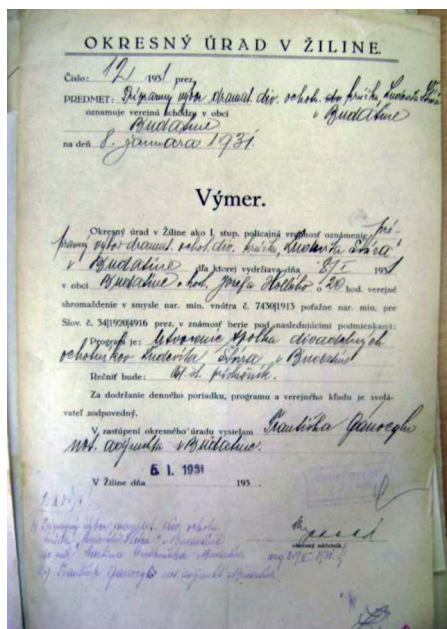 OKRESNÝ ÚRAD V ŽILINE.
Číslo: 12/ 1931 prez.
PREDMET: Prípravný výbor dramat. div. ochotn. krúžku Ľudovíta Štúra
oznamuje verejnú schôdzu v obci v Budatíne
Budatíne
na deň 8. januára 1931.
Výmer.
Okresný úrad v Žiline ako I. stup. policajná vrchnosť oznámenie prí-
pravný výbor dramat. ochot. div. krúžku „Ľudovíta Štúra“
v Budatíne dľa ktorej vydržiava dňa 8/I 1931
v obci Budatíne u host. Jozefa o 20 hod. verejné
shromaždenie v smysle nar. min. vnútra č. 7430|1913 poťažne nar. min. pre
Slov. č. 34|1920|4916 prez. v známosť berie pod nasledujúcimi podmienkami:
Program je: Utvorenie spolku divadelných
ochotníkov Ľudovíta Štúra v Budatíne
Rečniť bude: príslušník.
Za dodržanie denného poriadku, programu a verejného kľudu je svolá-
vateľ zodpovedný.
V zastúpení okresného úradu vysielam Františka
not. adjunkta v Budatíne.
5 I. 1931
V Žiline dňa 193
1) Prípravný výbor dramat. div. ochotn.
krúžku „Ľudovíta Štúra“, Budatín
okresný náčelník.
2) František not. adjunkt Budatín